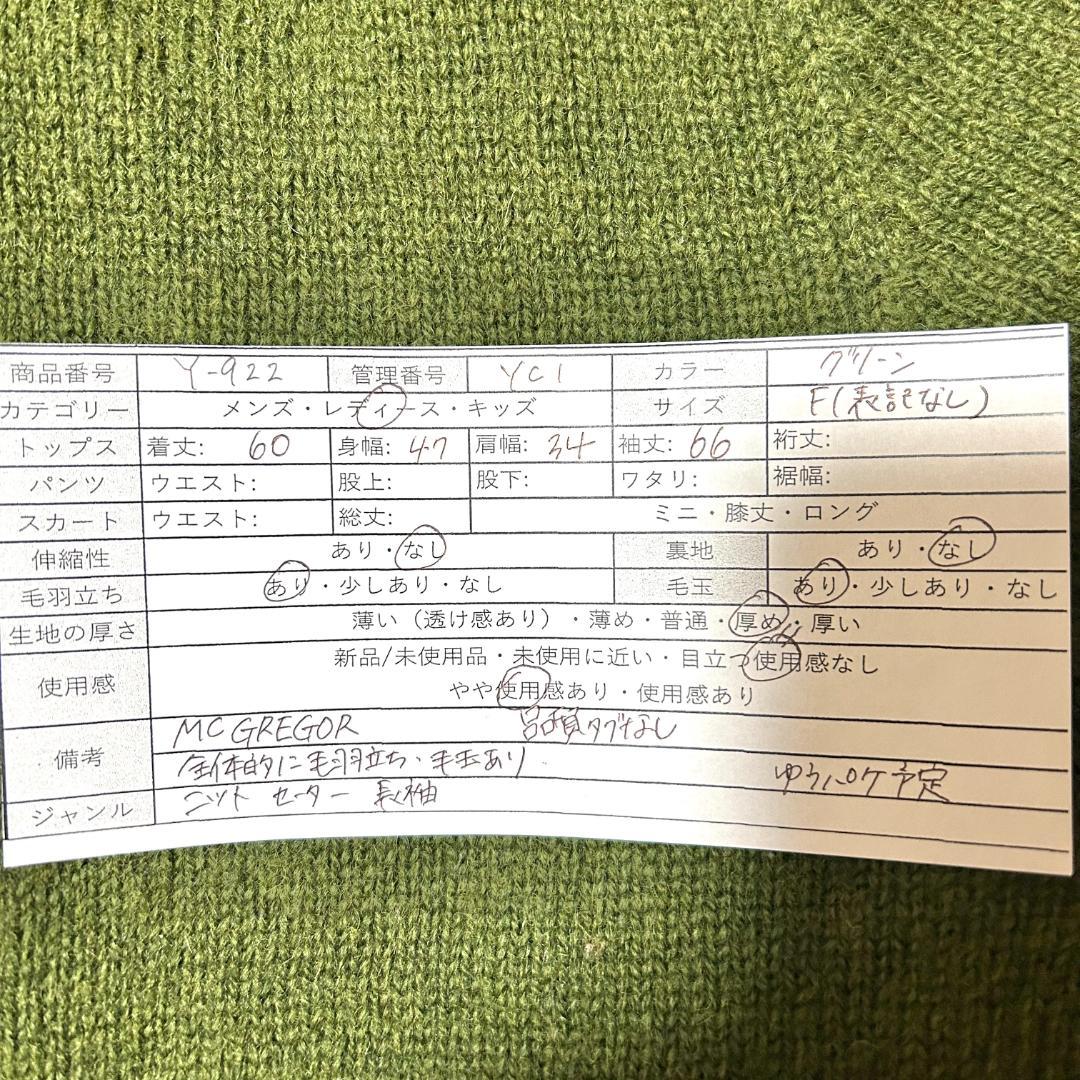 商品番号 Y-922 管理番号 YC1 カラー グリーン
カテゴリー メンズ・レディース・キッズ サイズ F(表記なし)
トップス 着丈: 60 身幅: 47 肩幅: 34 袖丈: 66 裄丈:
パンツ ウエスト: 股上: 股下: ワタリ: 裾幅:
スカート ウエスト: 総丈: ミニ・膝丈・ロング
伸縮性 あり・なし 裏地 あり・なし
毛羽立ち あり・少しあり・なし 毛玉 あり・少しあり・なし
生地の厚さ 薄い（透け感あり）・薄め・普通・厚め・厚い
使用感 新品/未使用品・未使用に近い・目立つ使用感なし
やや使用感あり・使用感あり
備考 MC GREGOR 品質タグなし
全体的に毛羽立ち、毛玉あり
ゆうパケ予定
ジャンル ニット セーター 長袖